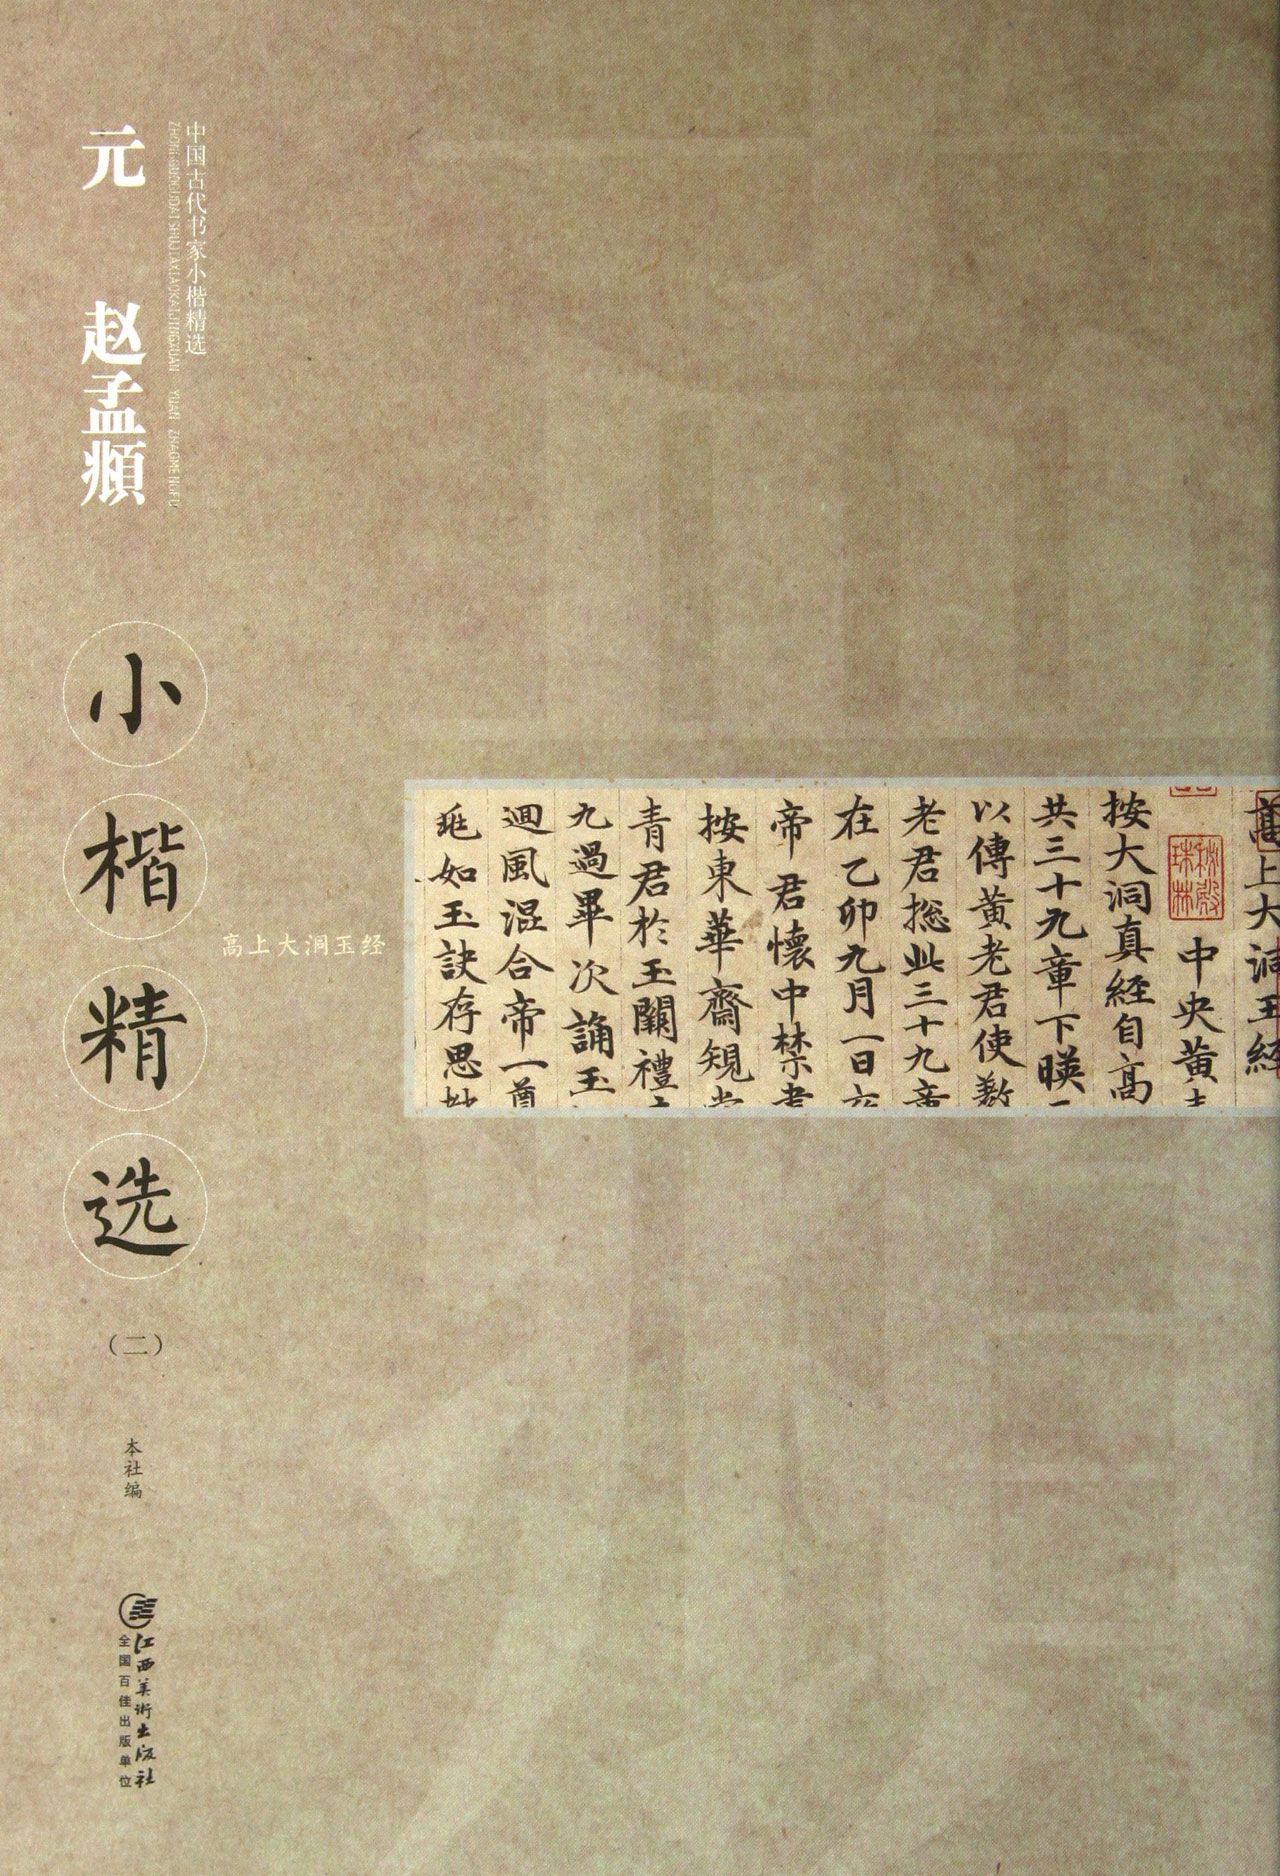 中国古代书家小楷精选
ZHONGGUOGUDAISHUJIAXIAOKAIJINGXUAN YUAN ZHAOMENGFU
元 赵孟頫
小楷精选
(二)
高上大洞玉经
本社编
江西美术出版社
全国百佳出版单位
高上大洞玉經
中央黄
秘殿珠林
按大洞真經自高
共三十九章下暎
以傳黄老君使敷
老君揔此三十九章
在乙卯九月一日
帝君懷中禁書
按東華齋䂓
青君於玉闕禮
九過畢次誦玉
迴風混合帝一尊
如玉訣存思